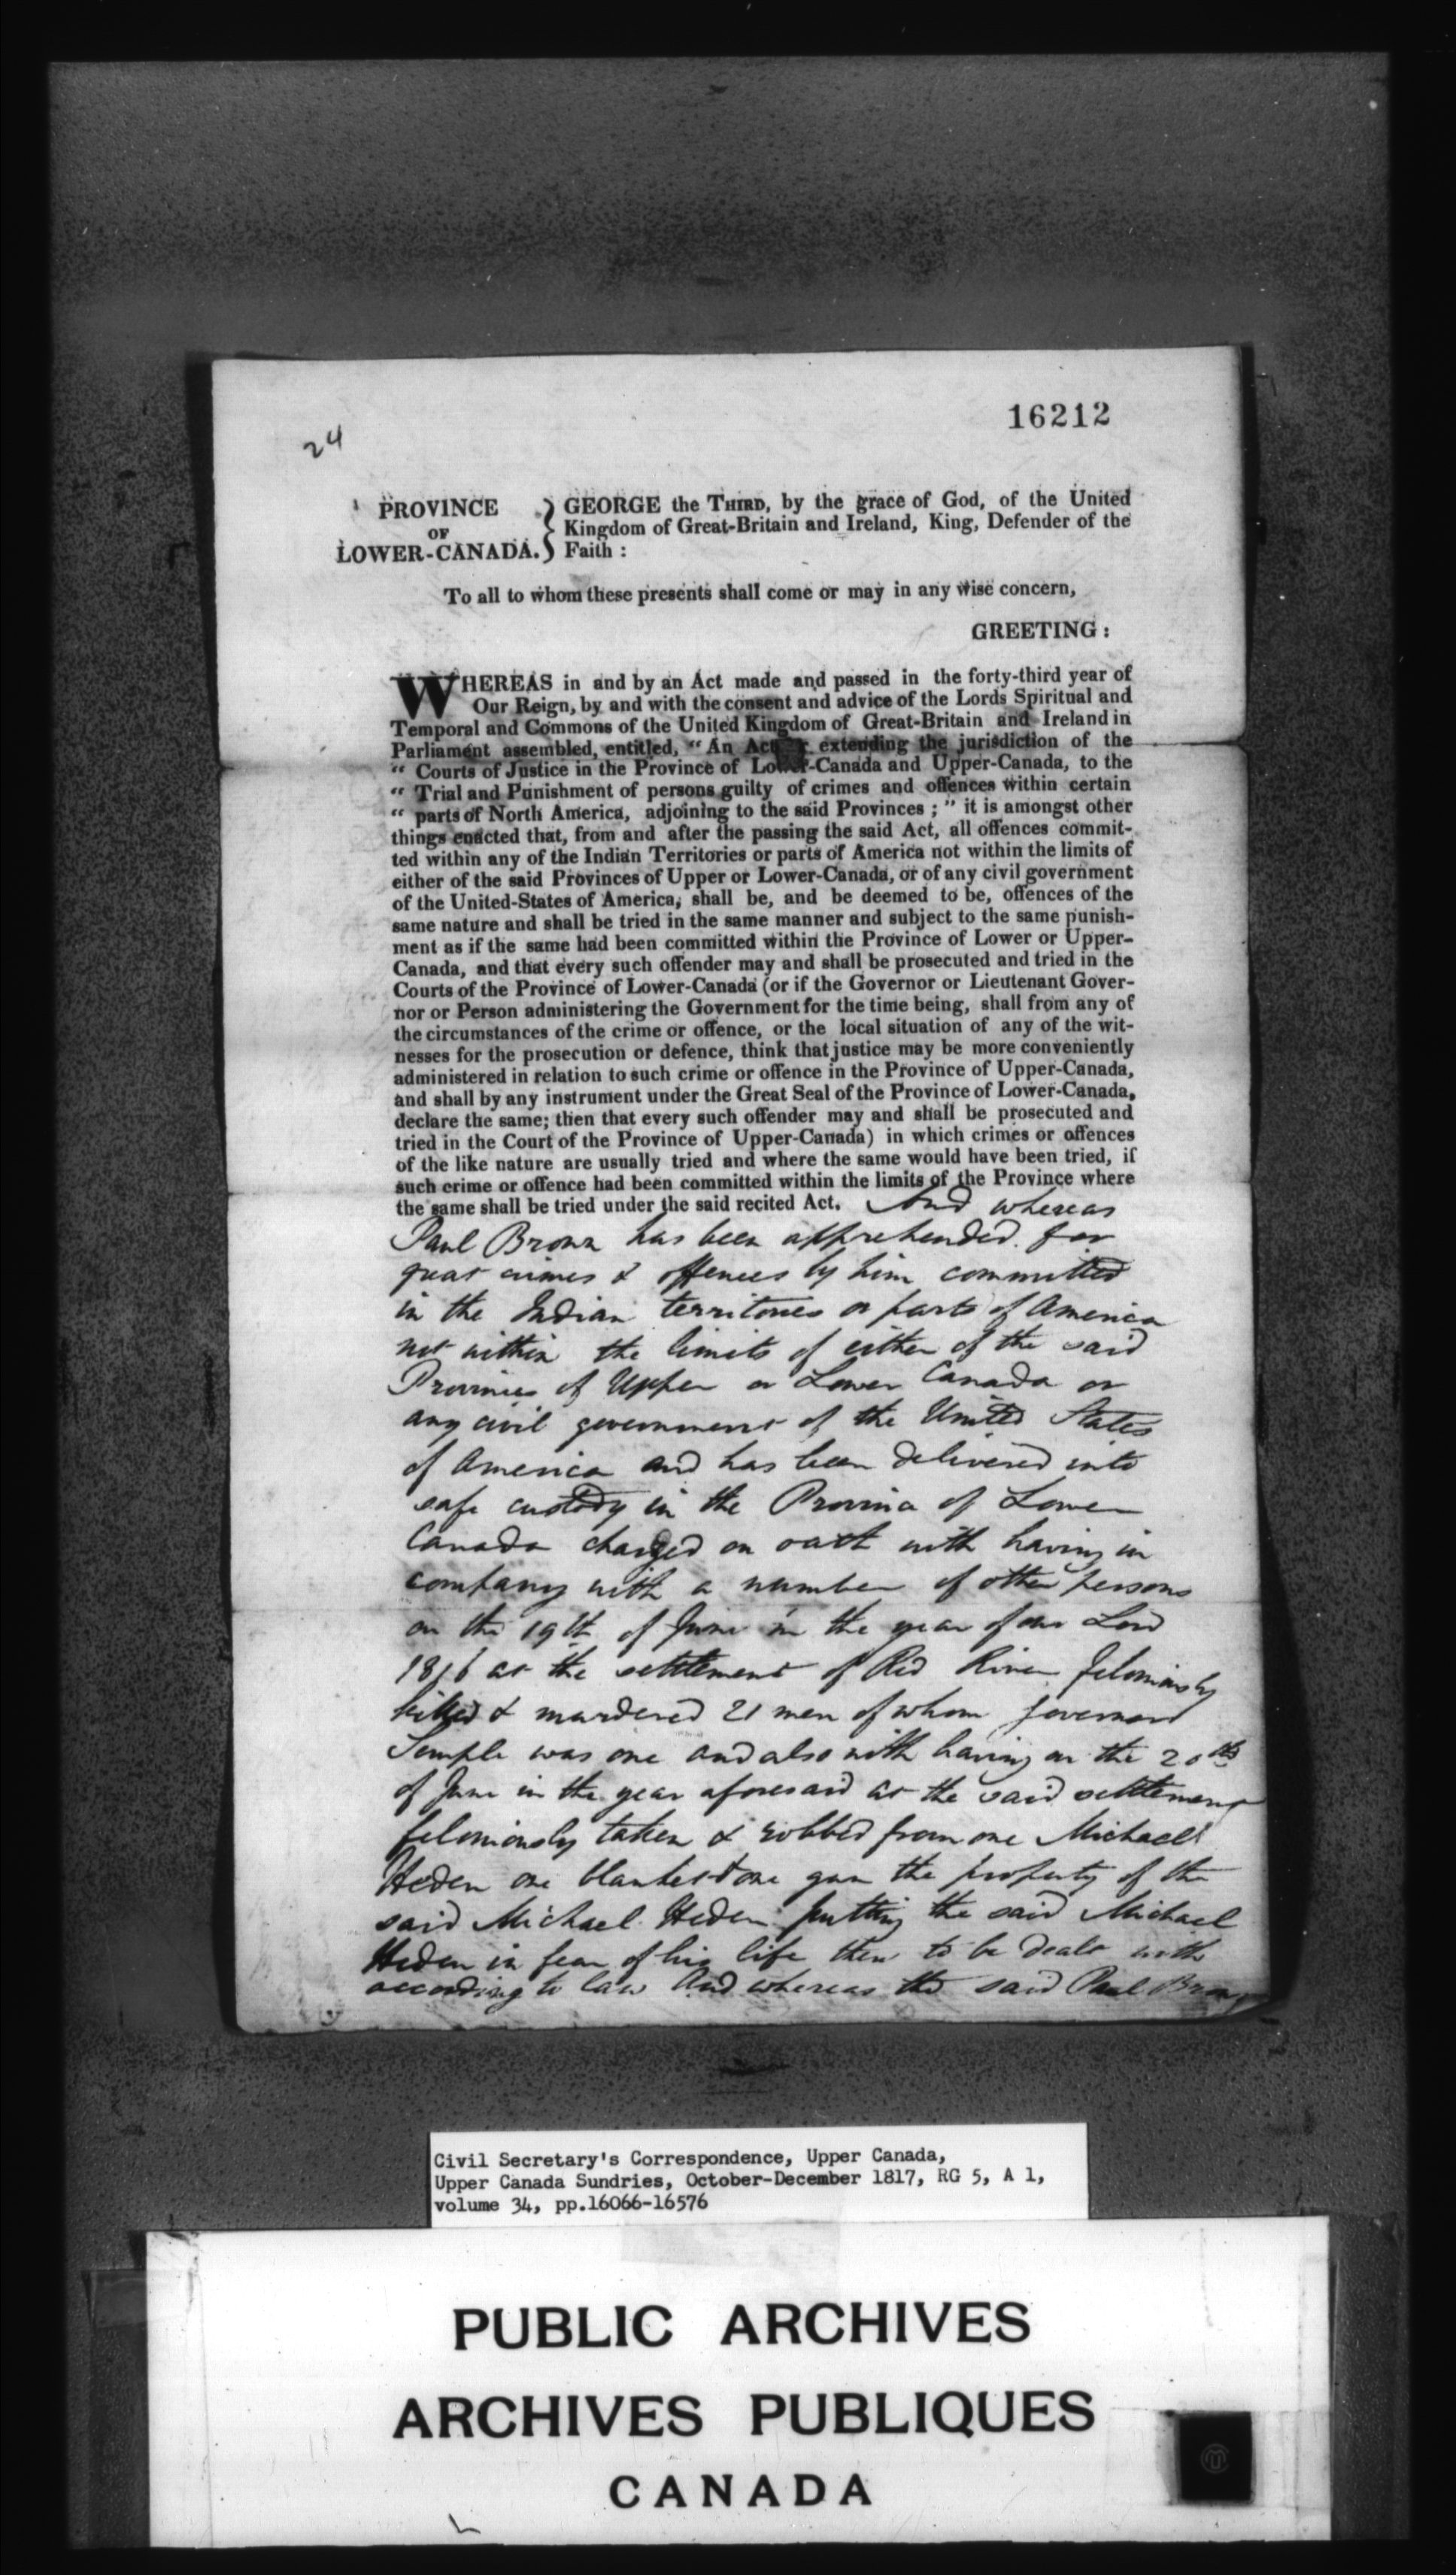 16212
24
PROVINCE
OF
LOWER-CANADA.
GEORGE the THIRD, by the grace of God, of the United
Kingdom of Great-Britain and Ireland, King, Defender of the
Faith :
To all to whom these presents shall come or may in any wise concern,
GREETING :
WHEREAS in and by an Act made and passed in the forty-third year of
Our Reign, by and with the consent and advice of the Lords Spiritual and
Temporal and Commons of the United Kingdom of Great-Britain and Ireland in
Parliament assembled, entitled, “ An Act extending the jurisdiction of the
“ Courts of Justice in the Province of Lower-Canada and Upper-Canada, to the
“ Trial and Punishment of persons guilty of crimes and offences within certain
“ parts of North America, adjoining to the said Provinces ; ” it is amongst other
things enacted that, from and after the passing the said Act, all offences commit-
ted within any of the Indian Territories or parts of America not within the limits of
either of the said Provinces of Upper or Lower-Canada, or of any civil government
of the United-States of America, shall be, and be deemed to be, offences of the
same nature and shall be tried in the same manner and subject to the same punish-
ment as if the same had been committed within the Province of Lower or Upper-
Canada, and that every such offender may and shall be prosecuted and tried in the
Courts of the Province of Lower-Canada (or if the Governor or Lieutenant Gover-
nor or Person administering the Government for the time being, shall from any of
the circumstances of the crime or offence, or the local situation of any of the wit-
nesses for the prosecution or defence, think that justice may be more conveniently
administered in relation to such crime or offence in the Province of Upper-Canada,
and shall by any instrument under the Great Seal of the Province of Lower-Canada,
declare the same; then that every such offender may and shall be prosecuted and
tried in the Court of the Province of Upper-Canada) in which crimes or offences
of the like nature are usually tried and where the same would have been tried, if
such crime or offence had been committed within the limits of the Province where
the same shall be tried under the said recited Act. And whereas
Paul Brown has been apprehended for
great crimes & offences by him committed
in the Indian territories or parts of America
not within the limits of either of the said
Provinces of Upper or Lower Canada or
any civil government of the United States
of America and has been delivered into
safe custody in the Province of Lower
Canada charged on oath with having in
company with a number of other persons
on the 19th of June in the year of our Lord
1816 at the settlement of Red River feloniously
killed & murdered 21 men of whom Governor
Semple was one and also with having on the 20th
of June in the year aforesaid at the said settlement
feloniously taken & robbed from one Michael
Heden one blanket & one gun the property of the
said Michael Heden putting the said Michael
Heden in fear of his life then to be dealt with
according to law And whereas the said Paul Brown
Civil Secretary's Correspondence, Upper Canada,
Upper Canada Sundries, October-December 1817, RG 5, A 1,
volume 34, pp.16066-16576
PUBLIC ARCHIVES
ARCHIVES PUBLIQUES
CANADA